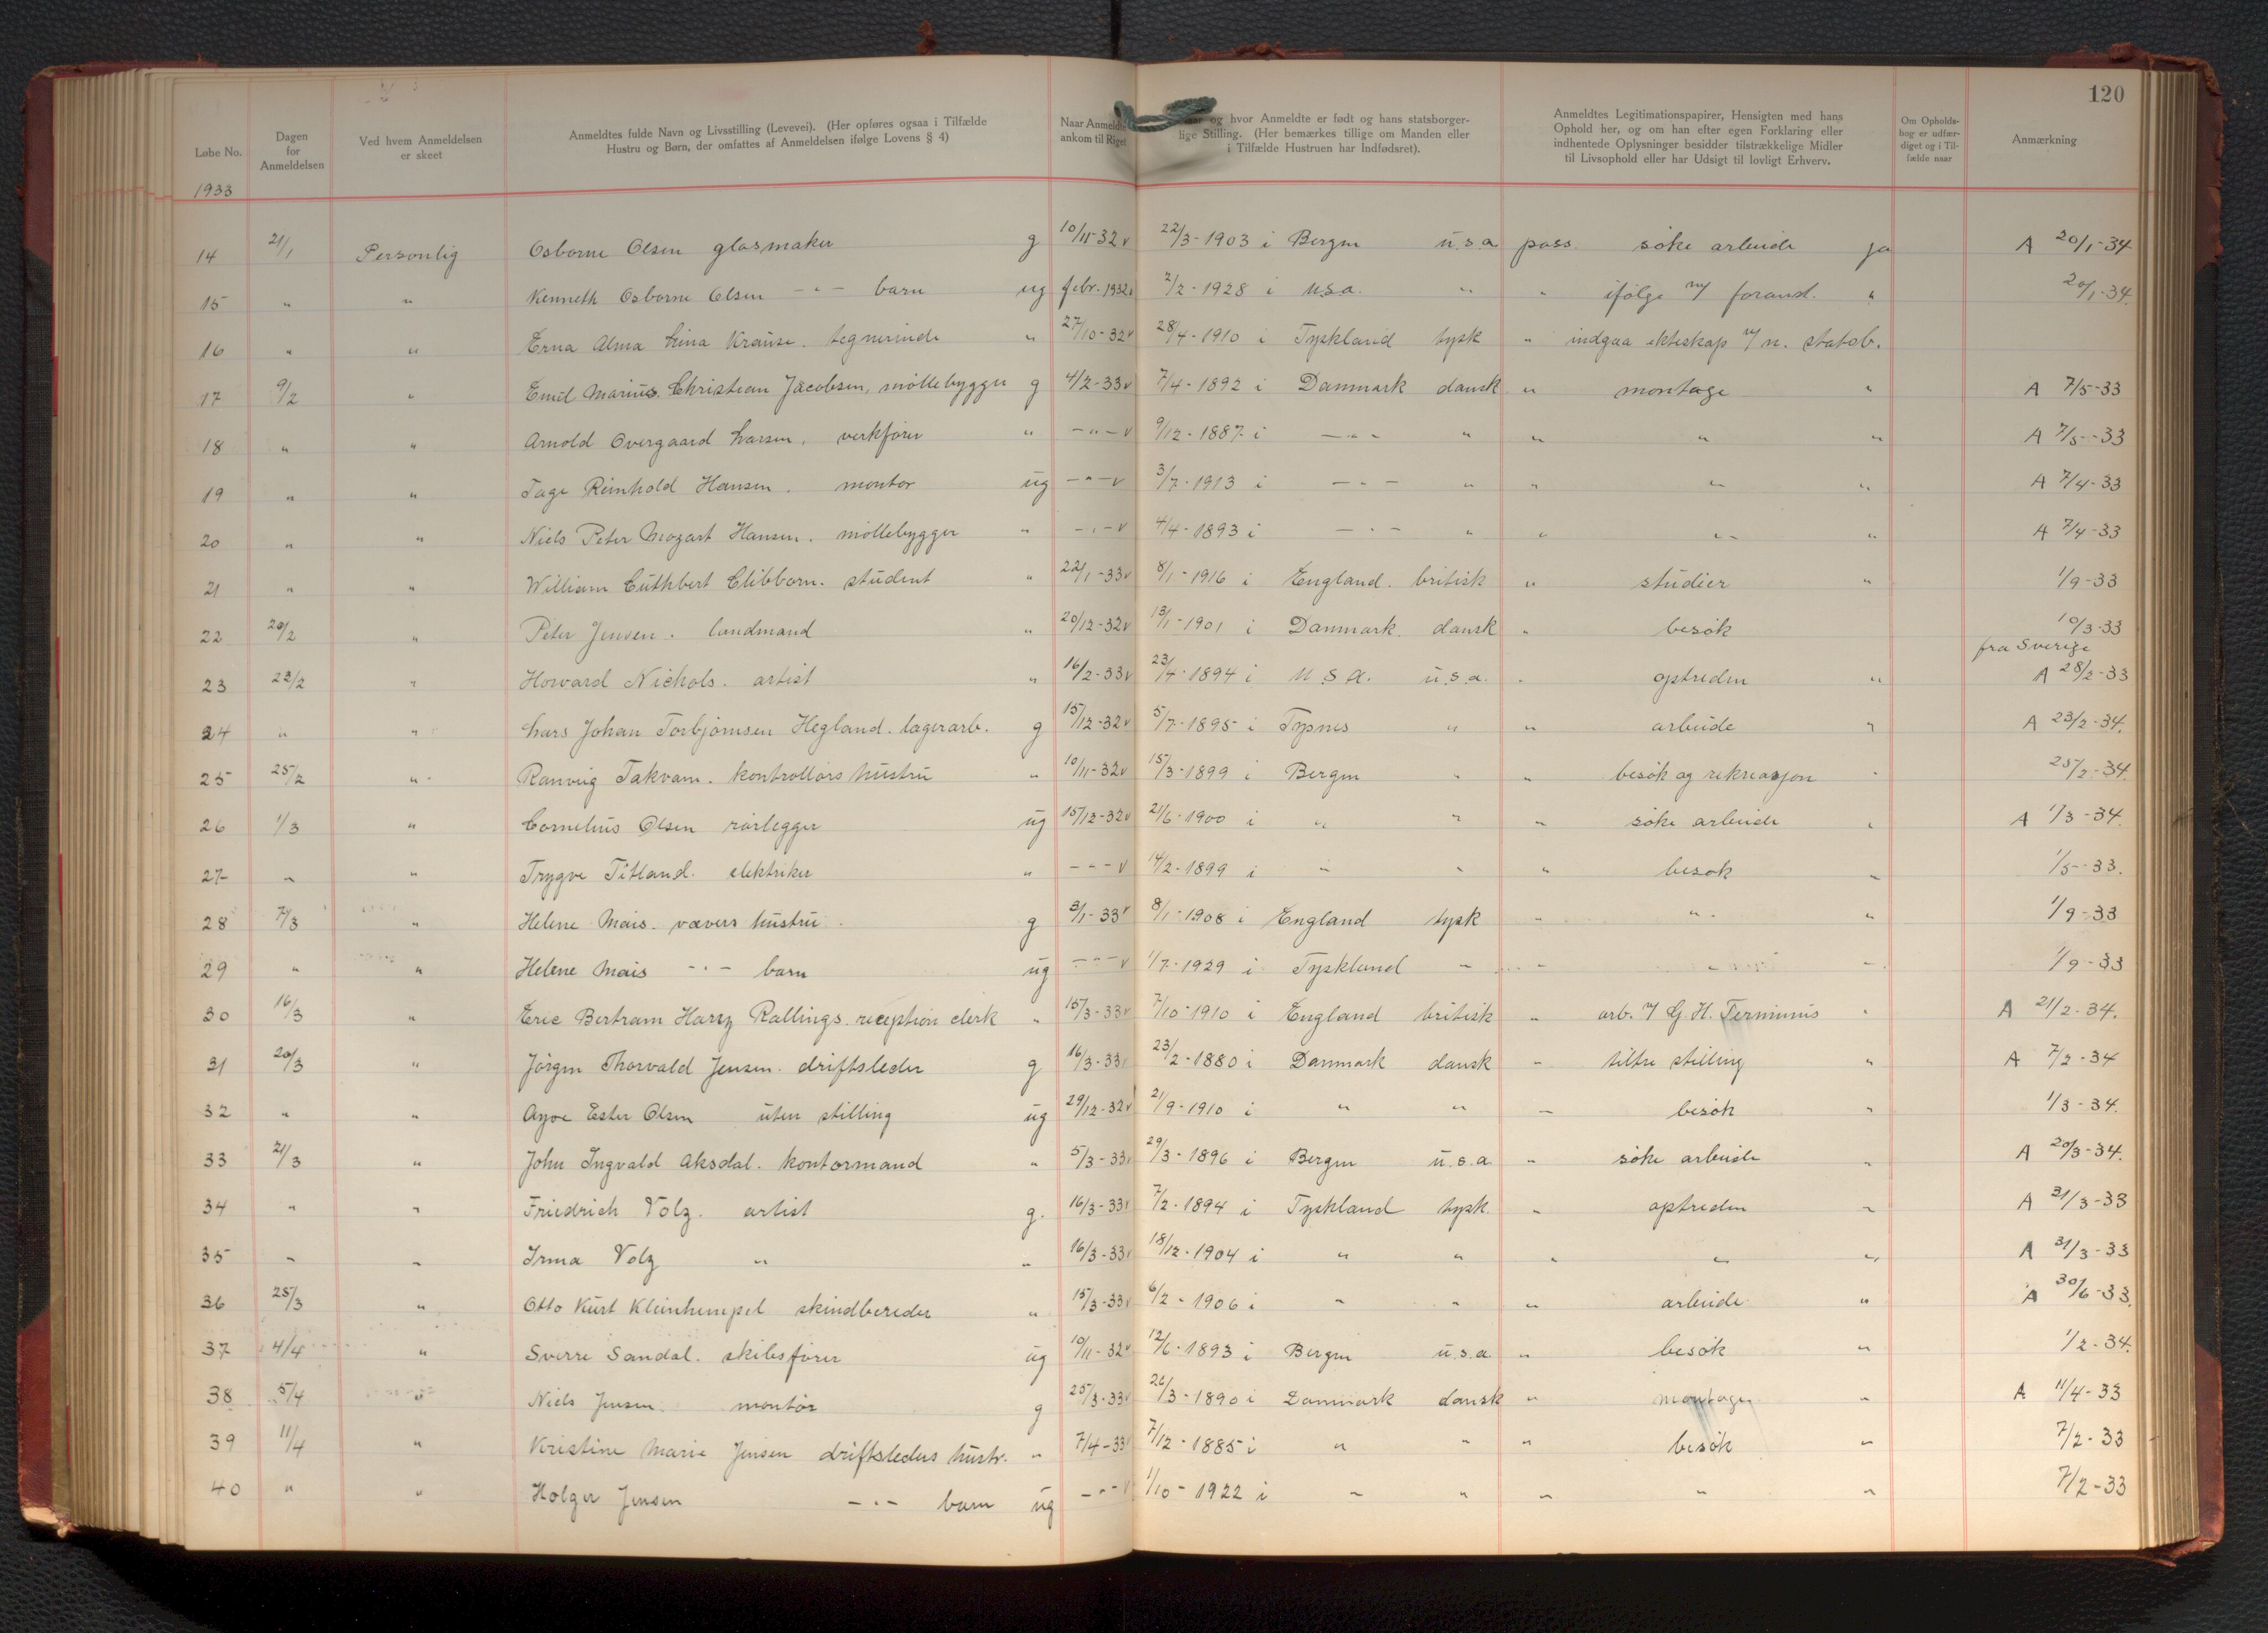 120
Løbe No.
Dagen for Anmeldelsen
Ved hvem Anmeldelsen er skeet
Anmeldtes fulde Navn og Livsstilling (Levevei). (Her opføres ogsaa i Tilfælde Hustru og Børn, der omfattes af Anmeldelsen ifølge Lovens § 4)
Naar Anmeldte ankom til Riget
og hvor Anmeldte er født og hans statsborgerlige Stilling. (Her bemærkes tillige om Manden eller i Tilfælde Hustruen har Indfødsret).
Anmeldtes Legitimationspapirer, Hensigten med hans Ophold her, og om han efter egen Forklaring eller indhentede Oplysninger besidder tilstrækkelige Midler til Livsophold eller har Udsigt til lovligt Erhverv.
Om Opholdsbog er udfærdiget og i Tilfælde naar
Anmærkning
1933
14 21/1 Personlig Osborne Olsen glasmaker g 10/11-32 v 22/3-1903 i Bergen u.s.a pass. søke arbeide ja A 20/1-34
15 " " Kenneth Osborne Olsen -"- barn ug febr. 1932 v 2/2-1928 i U.S.a. " " ifølge m/ forans. " 20/1-34.
16 " " Erna Alma Lina Krause. tegnerinde " 27/10-32 v 28/4-1910 i Tyskland tysk " indgaa ekteskap m/ n. statsb.
17 9/2 " Emil Marius Christian Jacobsen, møllebygger g 4/2-33 v 7/4-1892 i Danmark dansk " montage " A 7/5-33
18 " " Arnold Overgaard Larsen, verkfører " -"- v 9/12-1887 i -"- " " " " A 7/5-33
19 " " Tage Reinhold Hansen. montør ug -"- v 3/7-1913 i -"- " " " " A 7/4-33
20 " " Niels Peter Mozart Hansen. møllebygger " -"- v 4/4-1893 i -"- " " " " A 7/4-33
21 " " William Cuthbert Clibborn. student " 22/1-33 v 8/1-1916 i England. britisk " studier " 1/9-33
22 20/2 " Peter Jensen. landmand " 20/12-32 v 13/1-1901 i Danmark. dansk " besøk 10/3-33
fra Sverige
23 22/2 " Howard Nichols. artist " 16/2-33 v 23/4-1894 i U.S.A. u.s.a. " optreden " A 28/2-33
24 " " Lars Johan Torbjørnsen Hegland. lagerarb. g 15/12-32 v 5/7-1895 i Tysnes " " arbeide " A 23/2-34.
25 25/2 " Ranveig Takvam. kontrollørs hustru " 10/11-32 v 15/3-1899 i Bergen " " besøk og rekreasjon " 25/2-34.
26 1/3 " Cornelius Olsen rørlegger ug 15/12-32 v 21/6-1900 i " " " søke arbeide " A 1/3-34.
27 " " Trygve Titland. elektriker " -"- v 14/2-1899 i " " " besøk " 1/5-33.
28 7/3 " Helene Mais. vævers hustru. g 3/1-33 v 8/1-1908 i England tysk " " " 1/9-33
29 " " Helene Mais -"- barn ug -"- v 1/7-1929 i Tyskland " " " " 1/9-33
30 16/3 " Eric Bertram Harry Rallings. reception clerk " 15/3-33 v 7/10-1910 i England britisk " arb. v/ G. H. Terminus " A 21/2-34.
31 20/3 " Jörgen Thorvald Jensen. driftsleder g 16/3-33 v 23/2-1880 i Danmark dansk " tiltre stilling " A 7/2-34
32 " " Ester Olsen uten stilling ug 29/12-32 v 2/9-1910 i " " " besøk " 1/3-34.
33 21/3 " John Ingvald Aksdal. kontormand " 5/3-33 v 29/3-1896 i Bergen u.s.a " søke arbeide " A 20/3-34.
34 " " Friedrich Volz. artist g. 16/3-33 v 7/2-1894 i Tyskland tysk " optreden " A 31/3-33
35 " " Irma Volz " " 16/3-33 v 18/12-1904 i " " " " " A 31/3-33
36 25/3 " Otto Kurt Kleinhempel skindbereder " 15/3-33 v 6/2-1906 i " " " arbeide " A 30/6-33.
37 4/4 " Sverre Sandal. skibsfører ug 10/11-32 v 12/6-1893 i Bergen u.s.a " besøk " 1/2-34.
38 5/4 " Niels Jensen. montør g 25/3-33 v 26/3-1890 i Danmark dansk " montage " A 11/4-33
39 11/4 " Kristine Marie Jensen driftsleders hustr. " 7/4-33 v 7/12-1885 i " " " besøk " 7/2-33
40 " " Holger Jensen -"- barn ug -"- v 1/10-1922 i " " " " " 7/2-33